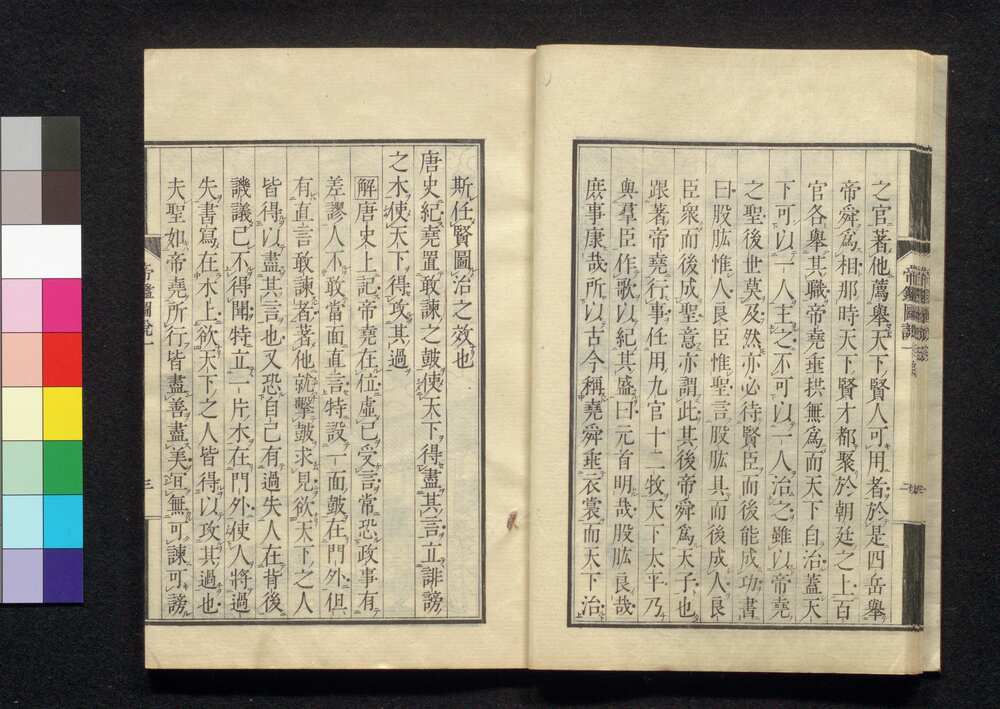 之官著他薦舉天下賢人可用者於是四岳舉
帝舜爲相那時天下賢才都聚於朝廷之上百
官各舉其職帝堯垂拱無爲而天下自治蓋天
下可以一人主之不可以一人治之雖以帝堯
之聖後世莫及然亦必待賢臣而後能成功書
曰股肱惟人良臣惟聖言股肱具而後成人良
臣衆而後成聖意亦謂此其後帝舜爲天子也
跟著帝堯行事任用九官十二牧天下太平乃
與羣臣作歌以紀其盛曰元首明哉股肱良哉
庶事康哉所以古今稱堯舜垂衣裳而天下治
斯任賢圖治之效也
唐史紀堯置敢諫之鼓使天下得盡其言立誹謗
之木使天下得攻其過
解唐史上記帝堯在位虛己受言常恐政事有
差謬人不敢當面直言特設一面鼓在門外但
有直言敢諫者著他就擊鼓求見欲天下之人
皆得以盡其言也又恐自己有過失人在背後
譏議己不得聞特立一片木在門外使人將過
失書寫在木上欲天下之人皆得以攻其過也
夫聖如帝堯所行皆盡善盡美宜無可諫可謗
帝鑑圖說一
三